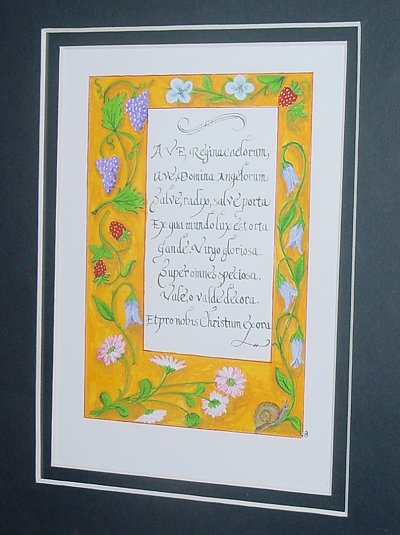 AVE, Regina caelorum,
Ave, Domina Angelorum
Salve, radix, salve, porta
Ex qua mundo lux est orta
Gaude, Virgo gloriosa.
Super omnes speciosa.
Vale, o valde decora.
Et pro nobis Christum exora